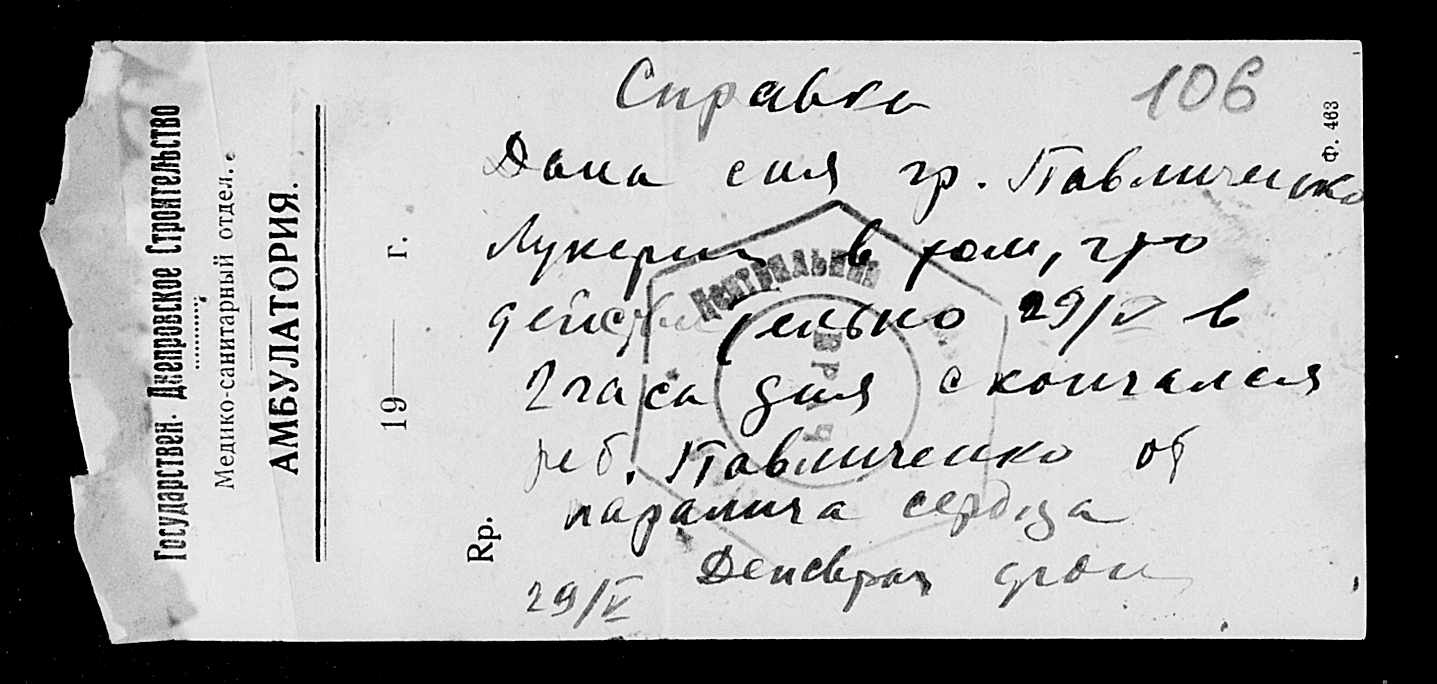 Государствен. Днепровское Строительство
Медико-санитарный отдел.
АМБУЛАТОРИЯ.
19 г.
Rp.
Ф. 463
106
Справка
Дана сия гр. Павличенко
Лукерии в том, что
действительно 29/V в
2 часа дня скончался
реб. Павличенко от
паралича сердца
Центральная
29/V